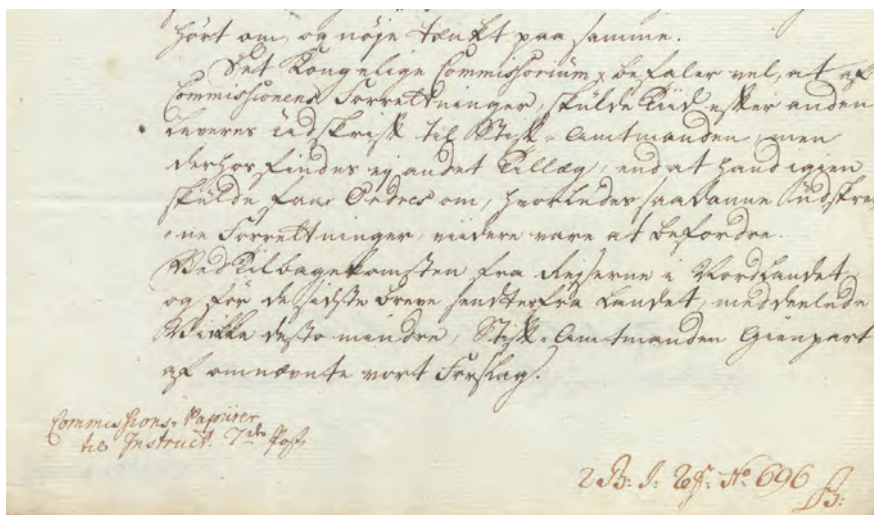 hört om, og nøje tænkt paa samme.
Det Kongelige Commissorium, befaler vel, at af
Commissionens Forrettninger, skulde Tiid efter anden
Leveres udskrift til Stift-Amtmanden, men
derhos findes ej andet Tillæg, end at hand igien
skulde faae Ordres om, hvorledes saadanne udskre-
-ne Forrettninger, viidere vare at befordre.
Ved Tilbagekomsten fra Rejserne i Nordlandet,
og før de sidste breve sendtes fra Landet, meddeelede
Vi ikke desto mindre, Stift-Amtmanden Gienpart
af omnævnte vort Forslag.
Commissions-Papiirer
til Instruct. 7de Post
No 696